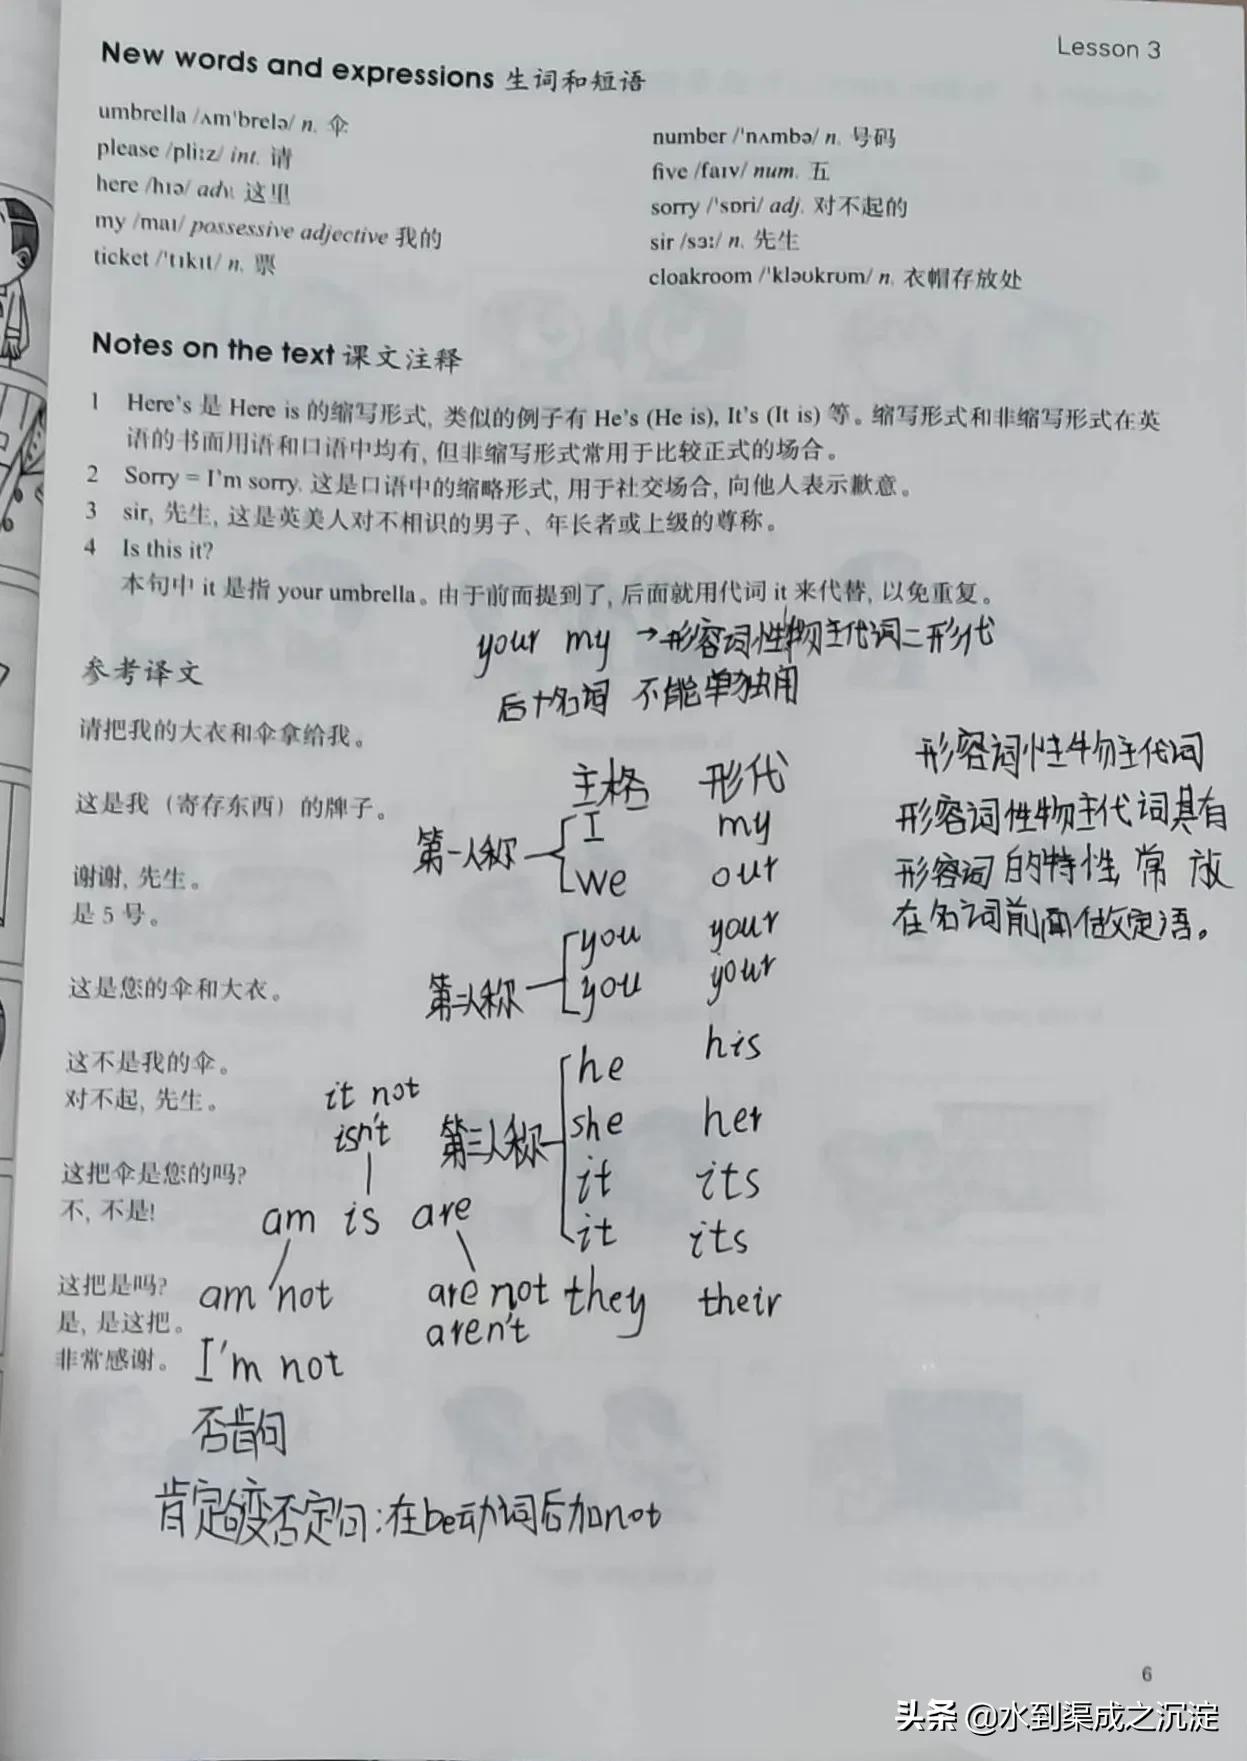 Lesson 3
New words and expressions 生词和短语
umbrella /ʌm'brelə/ n. 伞
please /pliːz/ int. 请
here /hɪə/ adv. 这里
my /maɪ/ possessive adjective 我的
ticket /'tɪkɪt/ n. 票
number /'nʌmbə/ n. 号码
five /faɪv/ num. 五
sorry /'sɒri/ adj. 对不起的
sir /sɜː/ n. 先生
cloakroom /'kləʊkrʊm/ n. 衣帽存放处
Notes on the text 课文注释
1 Here's 是 Here is 的缩写形式, 类似的例子有 He's (He is), It's (It is) 等。缩写形式和非缩写形式在英
语的书面用语和口语中均有, 但非缩写形式常用于比较正式的场合。
2 Sorry = I'm sorry. 这是口语中的缩略形式, 用于社交场合, 向他人表示歉意。
3 sir, 先生, 这是英美人对不相识的男子、年长者或上级的尊称。
4 Is this it?
本句中 it 是指 your umbrella。由于前面提到了, 后面就用代词 it 来代替, 以免重复。
your my →形容词性物主代词=形代
后+名词 不能单独用
参考译文
请把我的大衣和伞拿给我。
这是我（寄存东西）的牌子。
谢谢, 先生。
是 5 号。
这是您的伞和大衣。
这不是我的伞。
对不起, 先生。
这把伞是您的吗?
不, 不是!
这把是吗?
是, 是这把。
非常感谢。
主格 形代
第一人称 I my
we our
第二人称 you your
you your
第三人称 he his
she her
it its
it its
they their
形容词性物主代词
形容词性物主代词具有
形容词的特性, 常 放
在名词前面做定语。
it not
isn't
am is are
am not are not
aren't
I'm not
否肯句
肯定的变否定句:在be动词后加not
6
头条 @水到渠成之沉淀